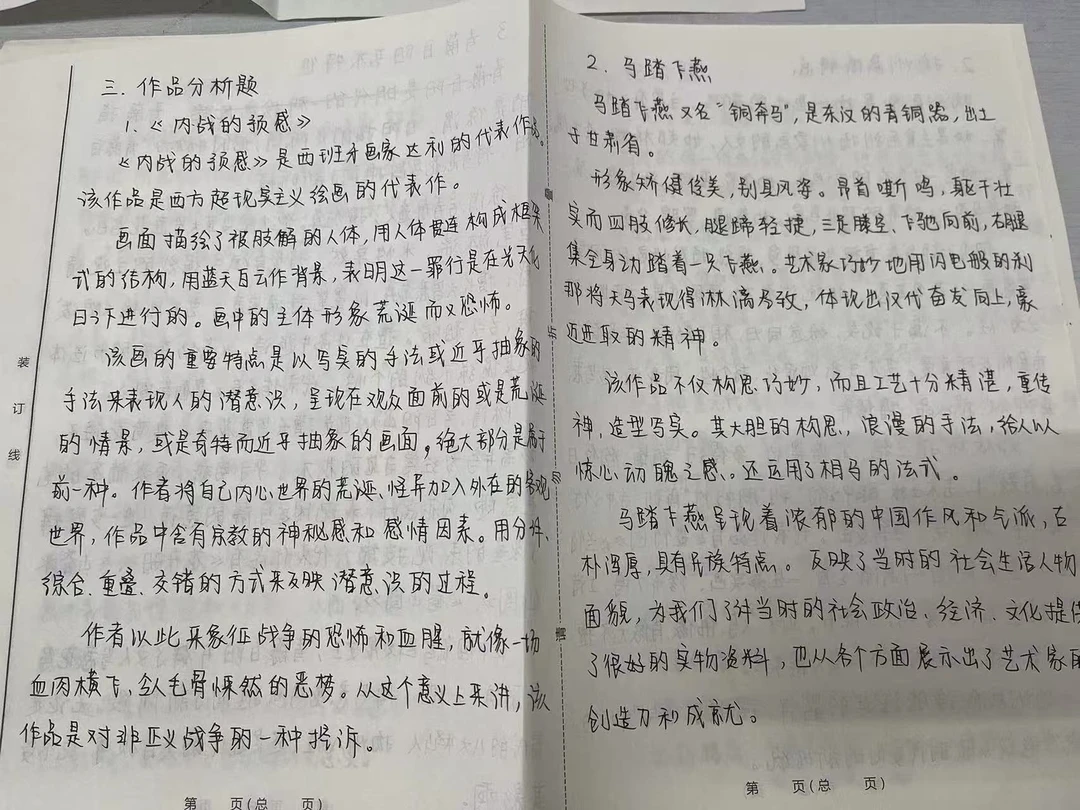 三. 作品分析题
1.《内战的预感》
《内战的预感》是西班牙画家达利的代表作品。
该作品是西方超现实主义绘画的代表作。
画面描绘了被肢解的人体,用人体贯连构成框架
式的结构,用蓝天白云作背景,表明这一罪行是在光天化
日之下进行的。画中的主体形象荒诞而又恐怖。
该画的重要特点是以写实的手法或近乎抽象的
手法来表现人的潜意识,呈现在观众面前的或是荒诞
的情景,或是奇特而近乎抽象的画面。绝大部分是属于
前一种。作者将自己内心世界的荒诞、怪异加入外在的客观
世界,作品中含有宗教的神秘感和感情因素。用分decomposition
综合、重叠、交错的方式来反映潜意识的过程。
作者以此来象征战争的恐怖和血腥,就像一场
血肉横飞,令人毛骨悚然的恶梦。从这个意义上来讲,该
作品是对非正义战争的一种控诉。
第 页(总 页)
装订线
2. 马踏飞燕
马踏飞燕又名“铜奔马”,是东汉的青铜器,出土
于甘肃省。
形象矫健俊美,别具风姿。昂首嘶鸣,躯干壮
实而四肢修长,腿蹄轻捷,三足腾空、飞驰向前,右腿
集全身力踏着一只飞燕。艺术家巧妙地用闪电般的刹
那将天马表现得淋漓尽致,体现出汉代奋发向上,豪
迈进取的精神。
该作品不仅构思巧妙,而且工艺十分精湛,重传
神,造型写实。其大胆的构思,浪漫的手法,给人以
惊心动魄之感。还运用了相马的法式。
马踏飞燕呈现着浓郁的中国作风和气派,古
朴浑厚,具有民族特点。反映了当时的社会生活人物
面貌,为我们了解当时的社会政治、经济、文化提供
了很好的实物资料,也从各个方面展示出了艺术家的
创造力和成就。
第 页(总 页)